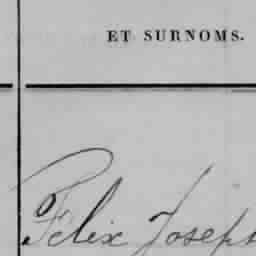 ET SURNOMS.
Félix Joseph